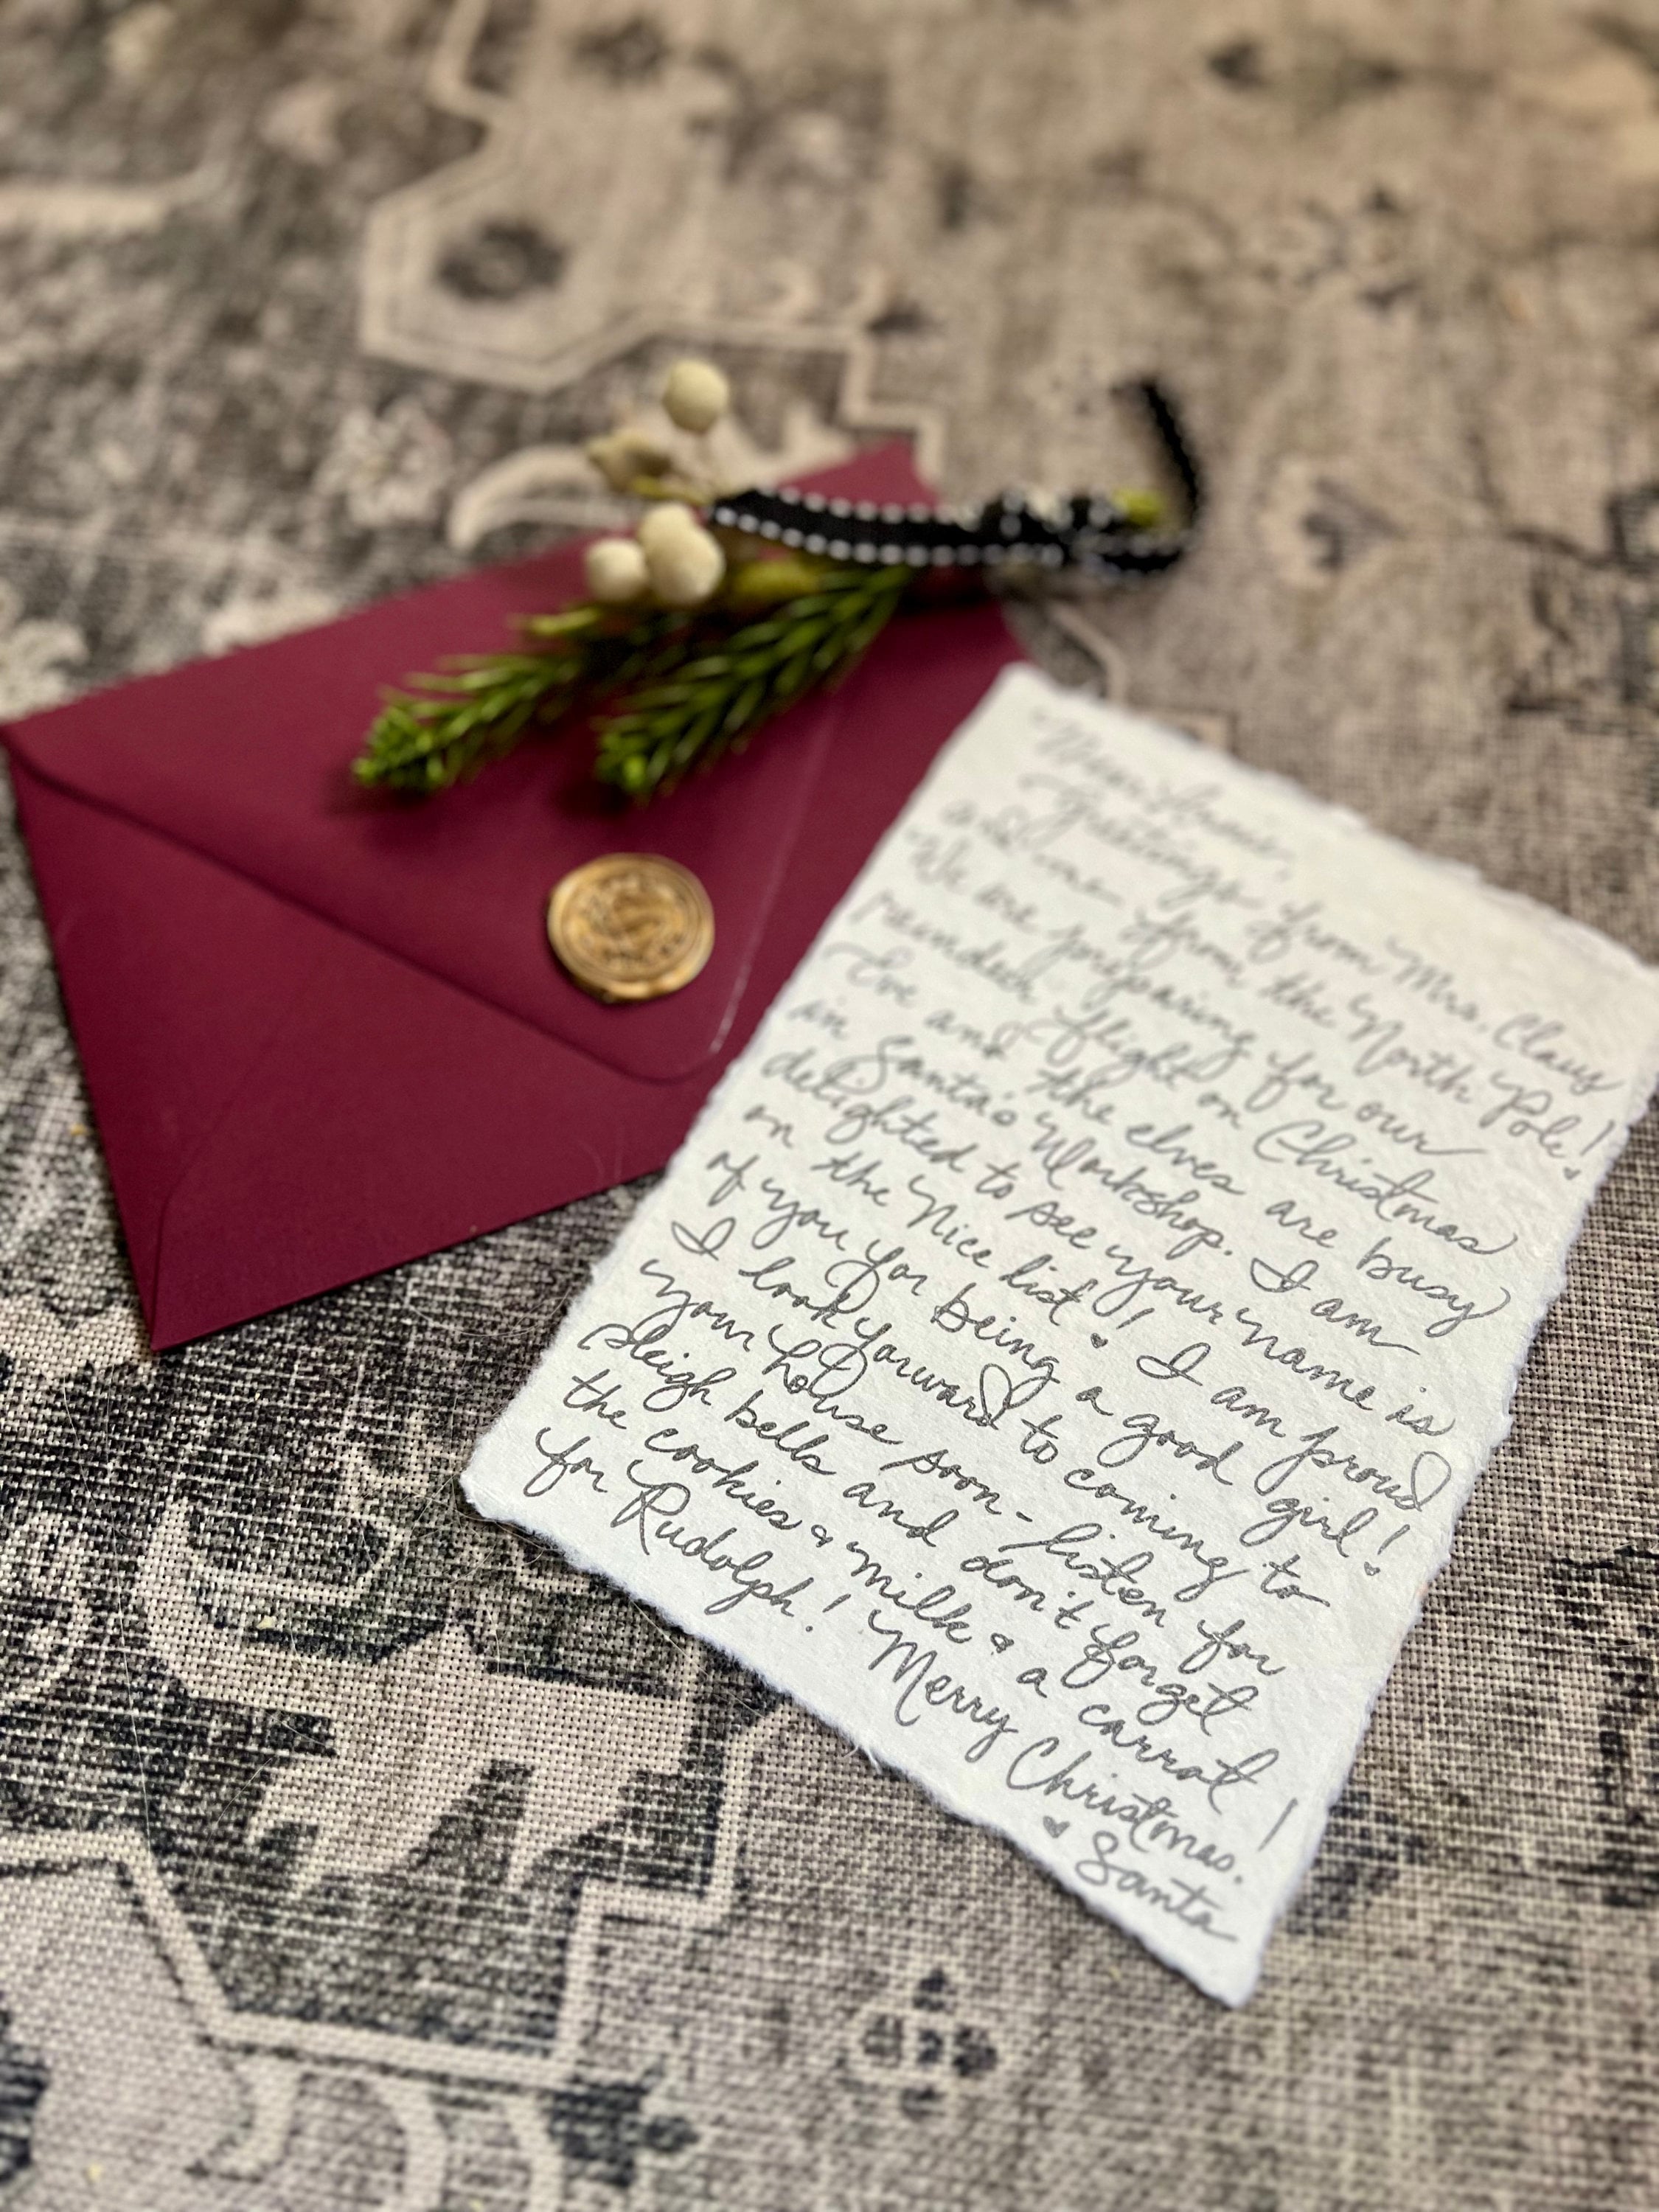 Dear
Greetings from Mrs. Claus
and me from the North Pole!
We are preparing for our
reindeer flight on Christmas
Eve and the elves are busy
in Santa's Workshop. I am
delighted to see your name is
on the Nice list! I am proud
of you for being a good girl!
I look forward to coming to
your house soon - listen for
sleigh bells and don't forget
the cookies & milk & a carrot
for Rudolph! Merry Christmas!
♥ Santa